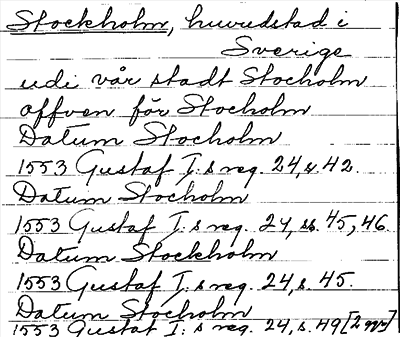 Stockholm, huvudstad i
Sverige
udi vår stadt Stocholm
offven för Stocholm
Datum Stocholm
1553 Gustaf I:s reg. 24, s. 42.
Datum Stocholm
1553 Gustaf I:s reg. 24, ss. 45, 46.
Datum Stockholm
1553 Gustaf I:s reg. 24, s. 45.
Datum Stocholm
1553 Gustaf I:s reg. 24, s. 49 [2 ggr]